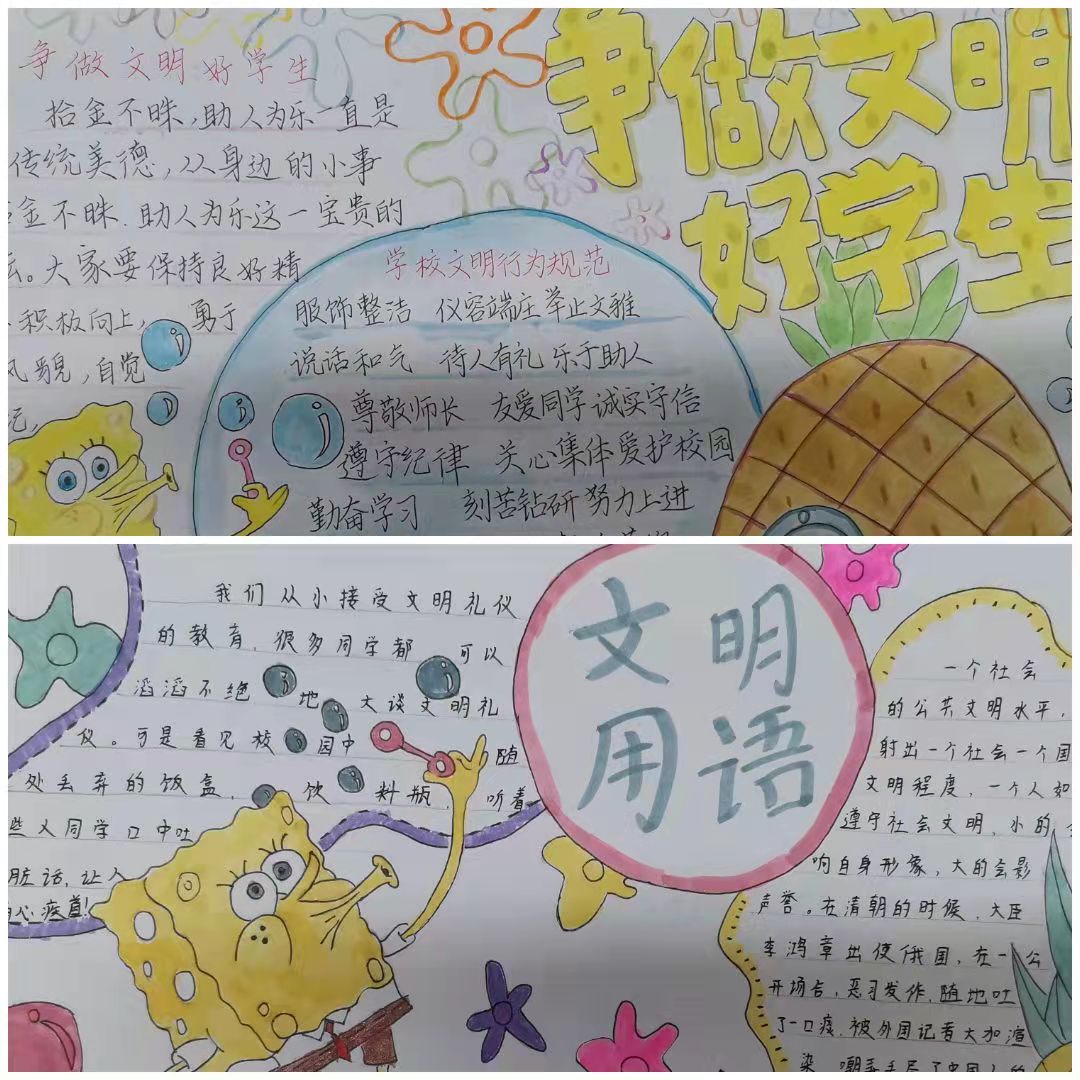 争做文明好学生
拾金不昧,助人为乐一直是
传统美德,从身边的小事
金不昧.助人为乐这一宝贵的
。大家要保持良好精
积极向上, 勇于
风貌,自觉
争做文明
好学生
学校文明行为规范
服饰整洁 仪容端庄 举止文雅
说话和气 待人有礼 乐于助人
尊敬师长 友爱同学 诚实守信
遵守纪律 关心集体 爱护校园
勤奋学习 刻苦钻研 努力上进
我们从小接受文明礼仪
的教育,很多同学都可以
滔滔不绝地大谈文明礼
仪。可是看见校园中随
处丢弃的饭盒,饮料瓶,听着
些义同学口中吐
脏话,让人
心疼首!
文明
用语
一个社会
的公共文明水平,
射出一个社会一个国
文明程度,一个人如
遵守社会文明,小的
响自身形象,大的会影
声誉。在清朝的时候,大臣
李鸿章出使俄国,在一公
开场合,恶习发作,随地吐
了一口痰,被外国记者大加渲
染